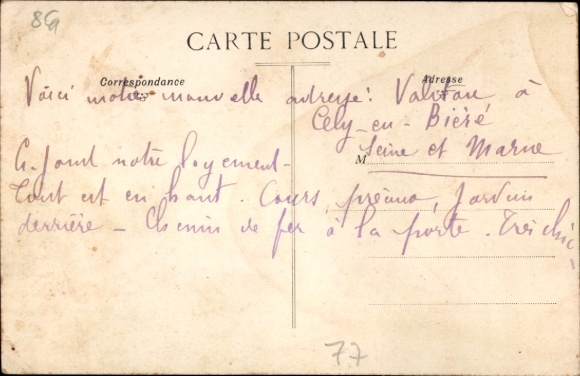 8G
CARTE POSTALE
Correspondance
Adresse
Voici notre nouvelle adresse: à
Cely-en-Bière
M Seine et Marne
notre logement-
tout est en haut. Cours, préau, Jardin
derrière - Chemin de fer à la porte. Très chic,
77